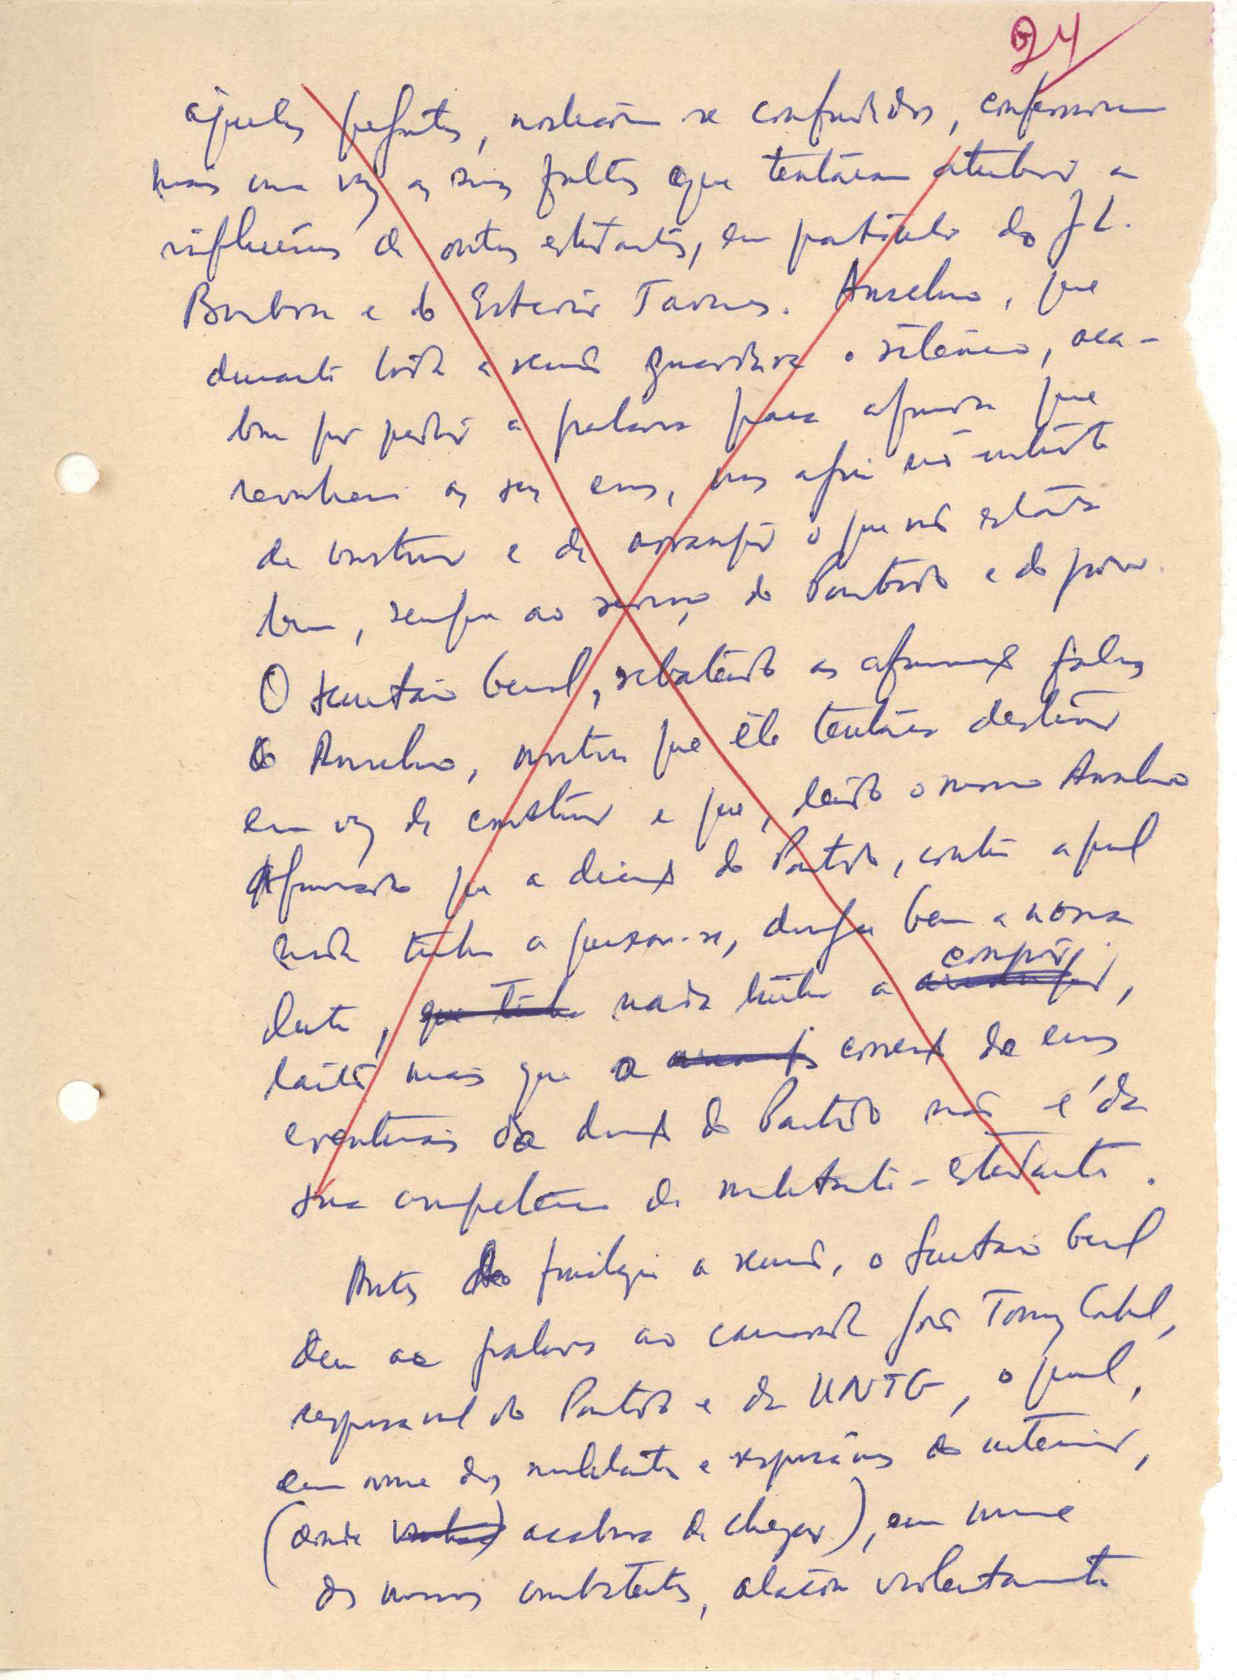 24
aquelas perguntas, mostraram-se confundidos, confessaram
mais uma vez as suas faltas que tentaram atribuir a
influências de outros estudantes, em particular do J L.
Barbosa e do Estevão Tavares. Anselmo, que
durante toda a reunião guardara o silêncio, aca-
bou por pedir a palavra para afirmar que
reconhecia os seus erros, mas agiu no intuito
de construir e de arranjar o que não estava
bem, sempre ao serviço do Partido e do povo.
O Secretário Geral, rebatendo as afirmações falsas
do Anselmo, mostrou que êle tentara destruir
em vez de construir e que, tendo o mesmo Anselmo
afirmado que a direcção do Partido, contra a qual
nada tinha a queixar-se, dirigia bem a nossa
luta, que tinha nada tinha a compôr,
tanto mais que a correcção de erros
eventuais da direcção do Partido não é da
sua competência de militante-estudante.
Antes de finalizar a reunião, o Secretário Geral
deu a palavra ao camarada José Tomaz Cabral,
responsável do Partido e da UNTG, o qual,
em nome dos militantes e responsáveis do interior,
(donde vinha acabava de chegar), em nome
dos nossos combatentes, atacou violentamente